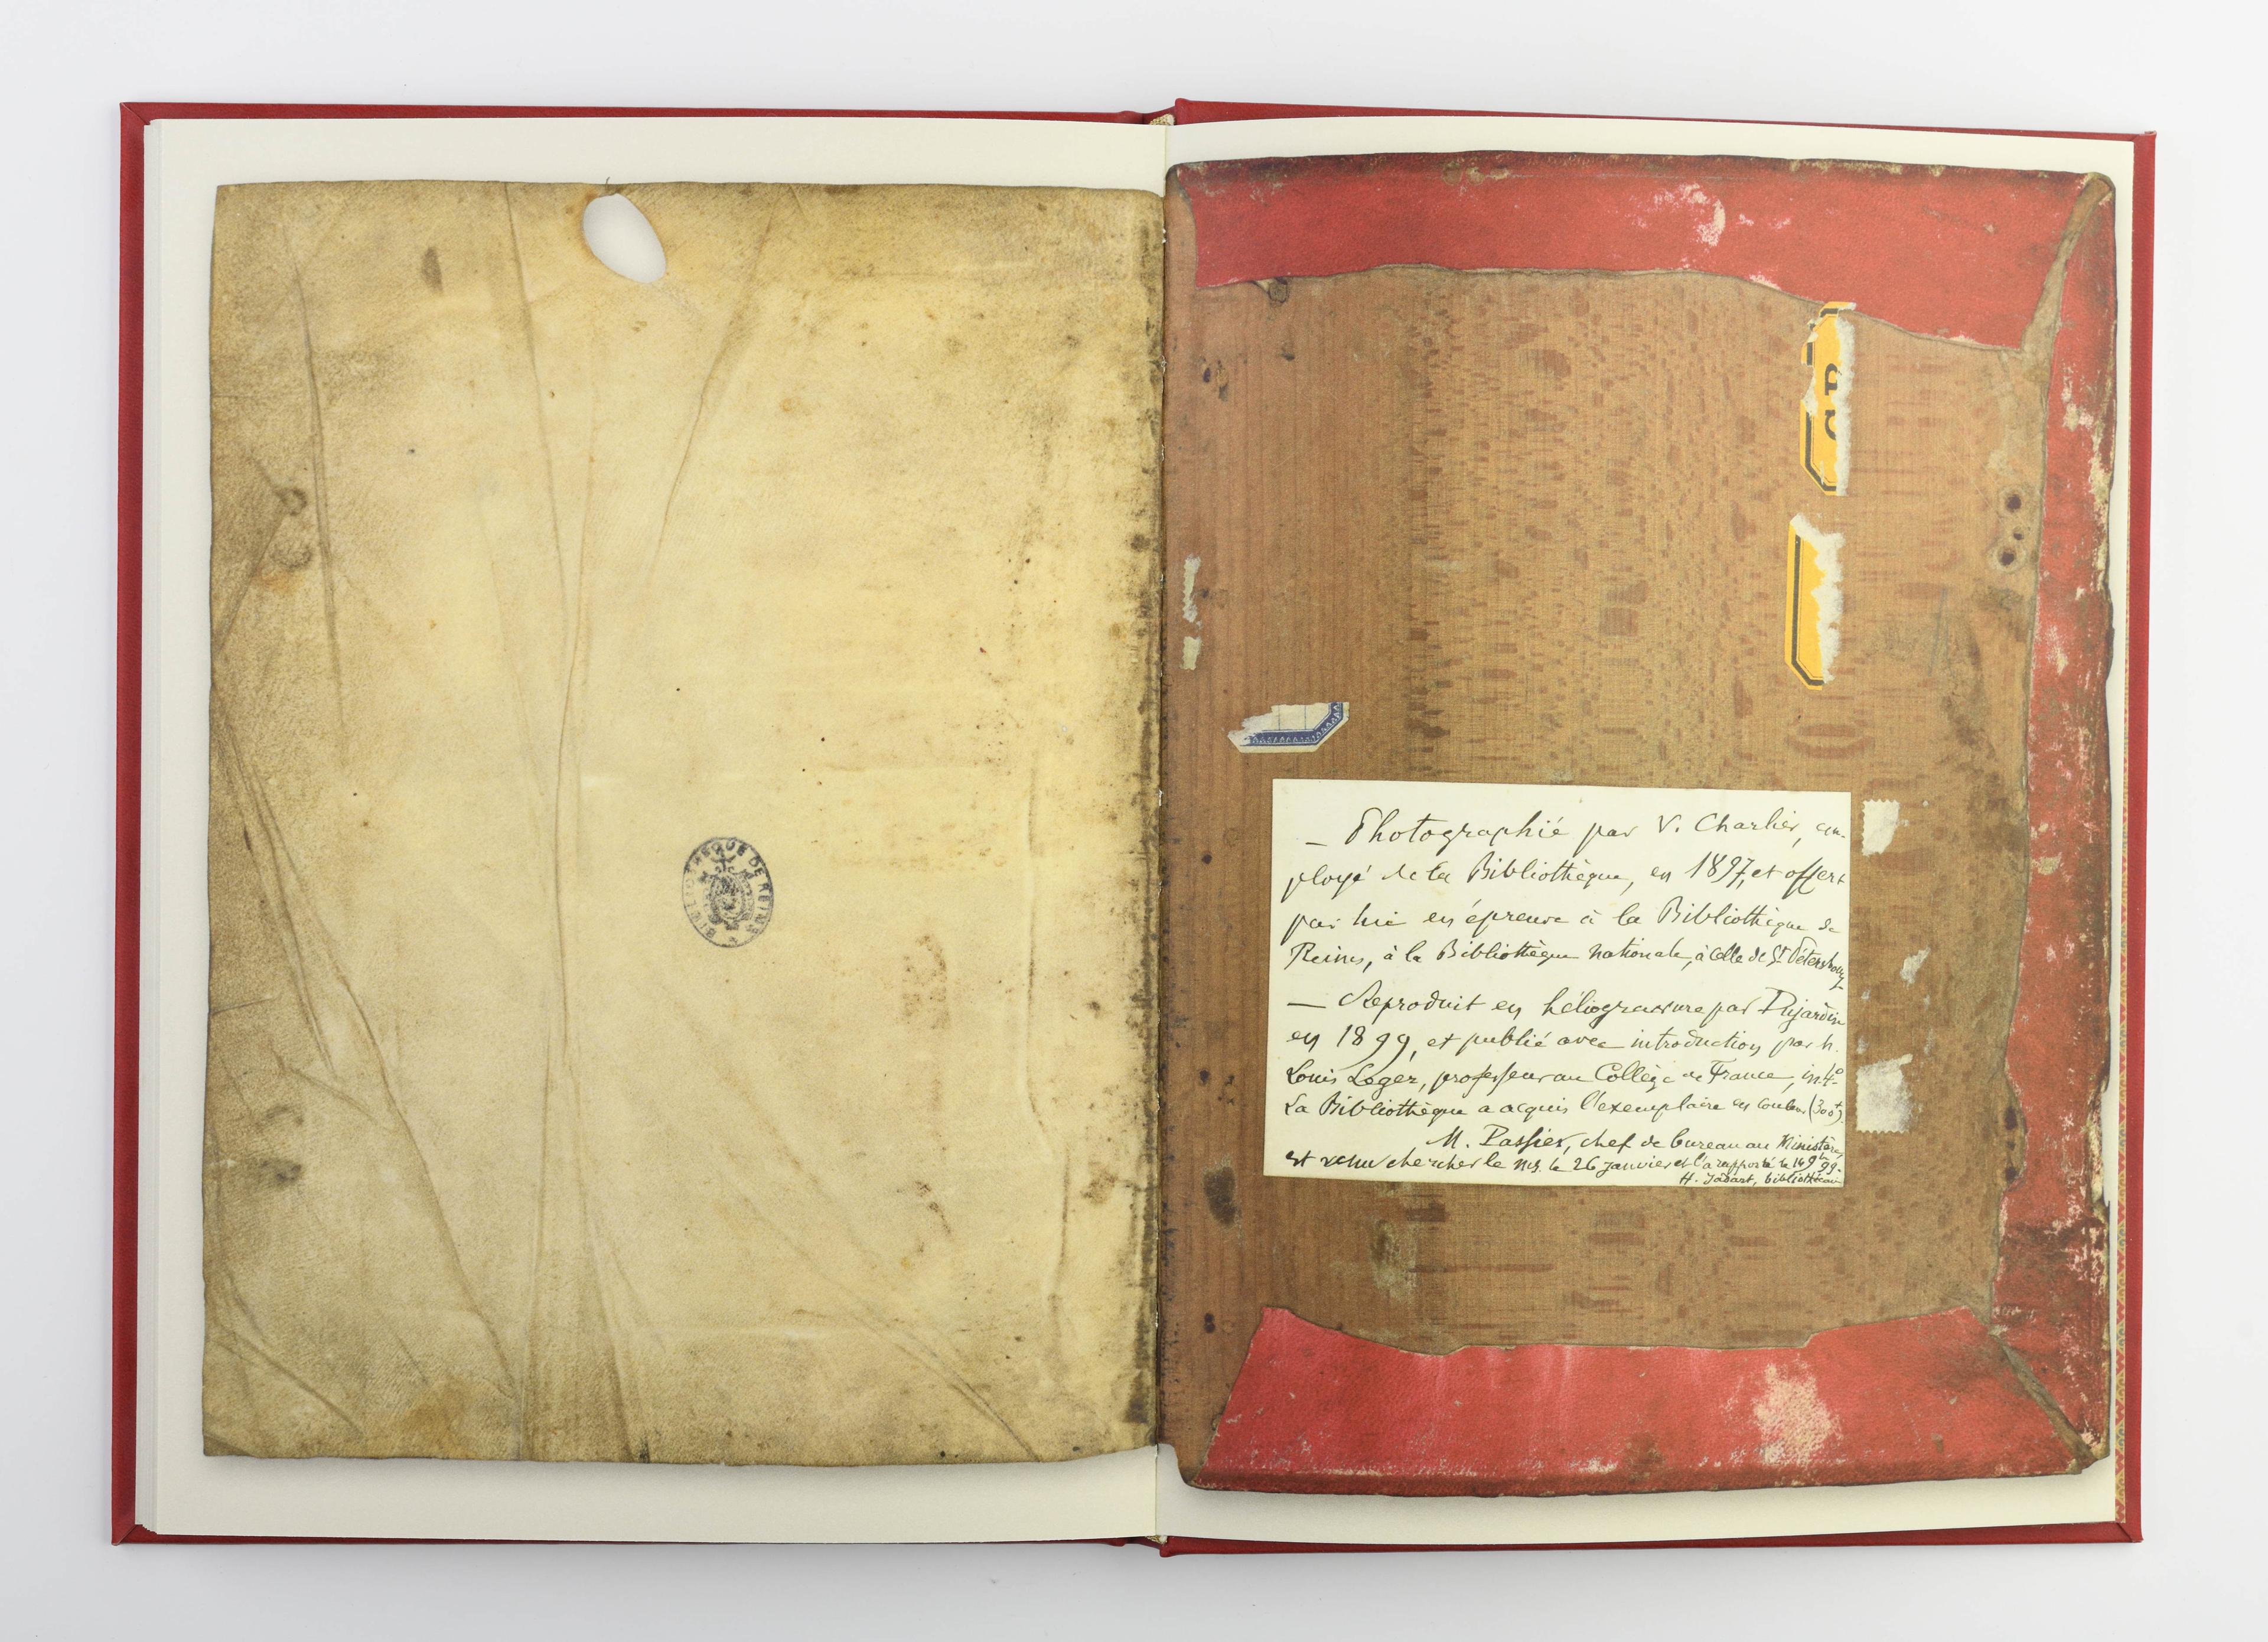 BIBLIOTHEQUE DE REIMS
— Photographié par V. Charlier, em-
ployé de la Bibliothèque, en 1897, et offert
par lui en épreuve à la Bibliothèque de
Reims, à la Bibliothèque nationale, à celle de St Pétersbourg
— Reproduit en héliogravure par Dujardin
en 1899, et publié avec introduction par M.
Louis Leger, professeur au Collège de France, in 4°
La Bibliothèque a acquis l'exemplaire en couleur (300f).
M. Passier, chef de bureau au Ministère,
est venu chercher le ms. le 26 janvier et l'a rapporté le 14 9bre 99.
H. Jadart, bibliothécaire